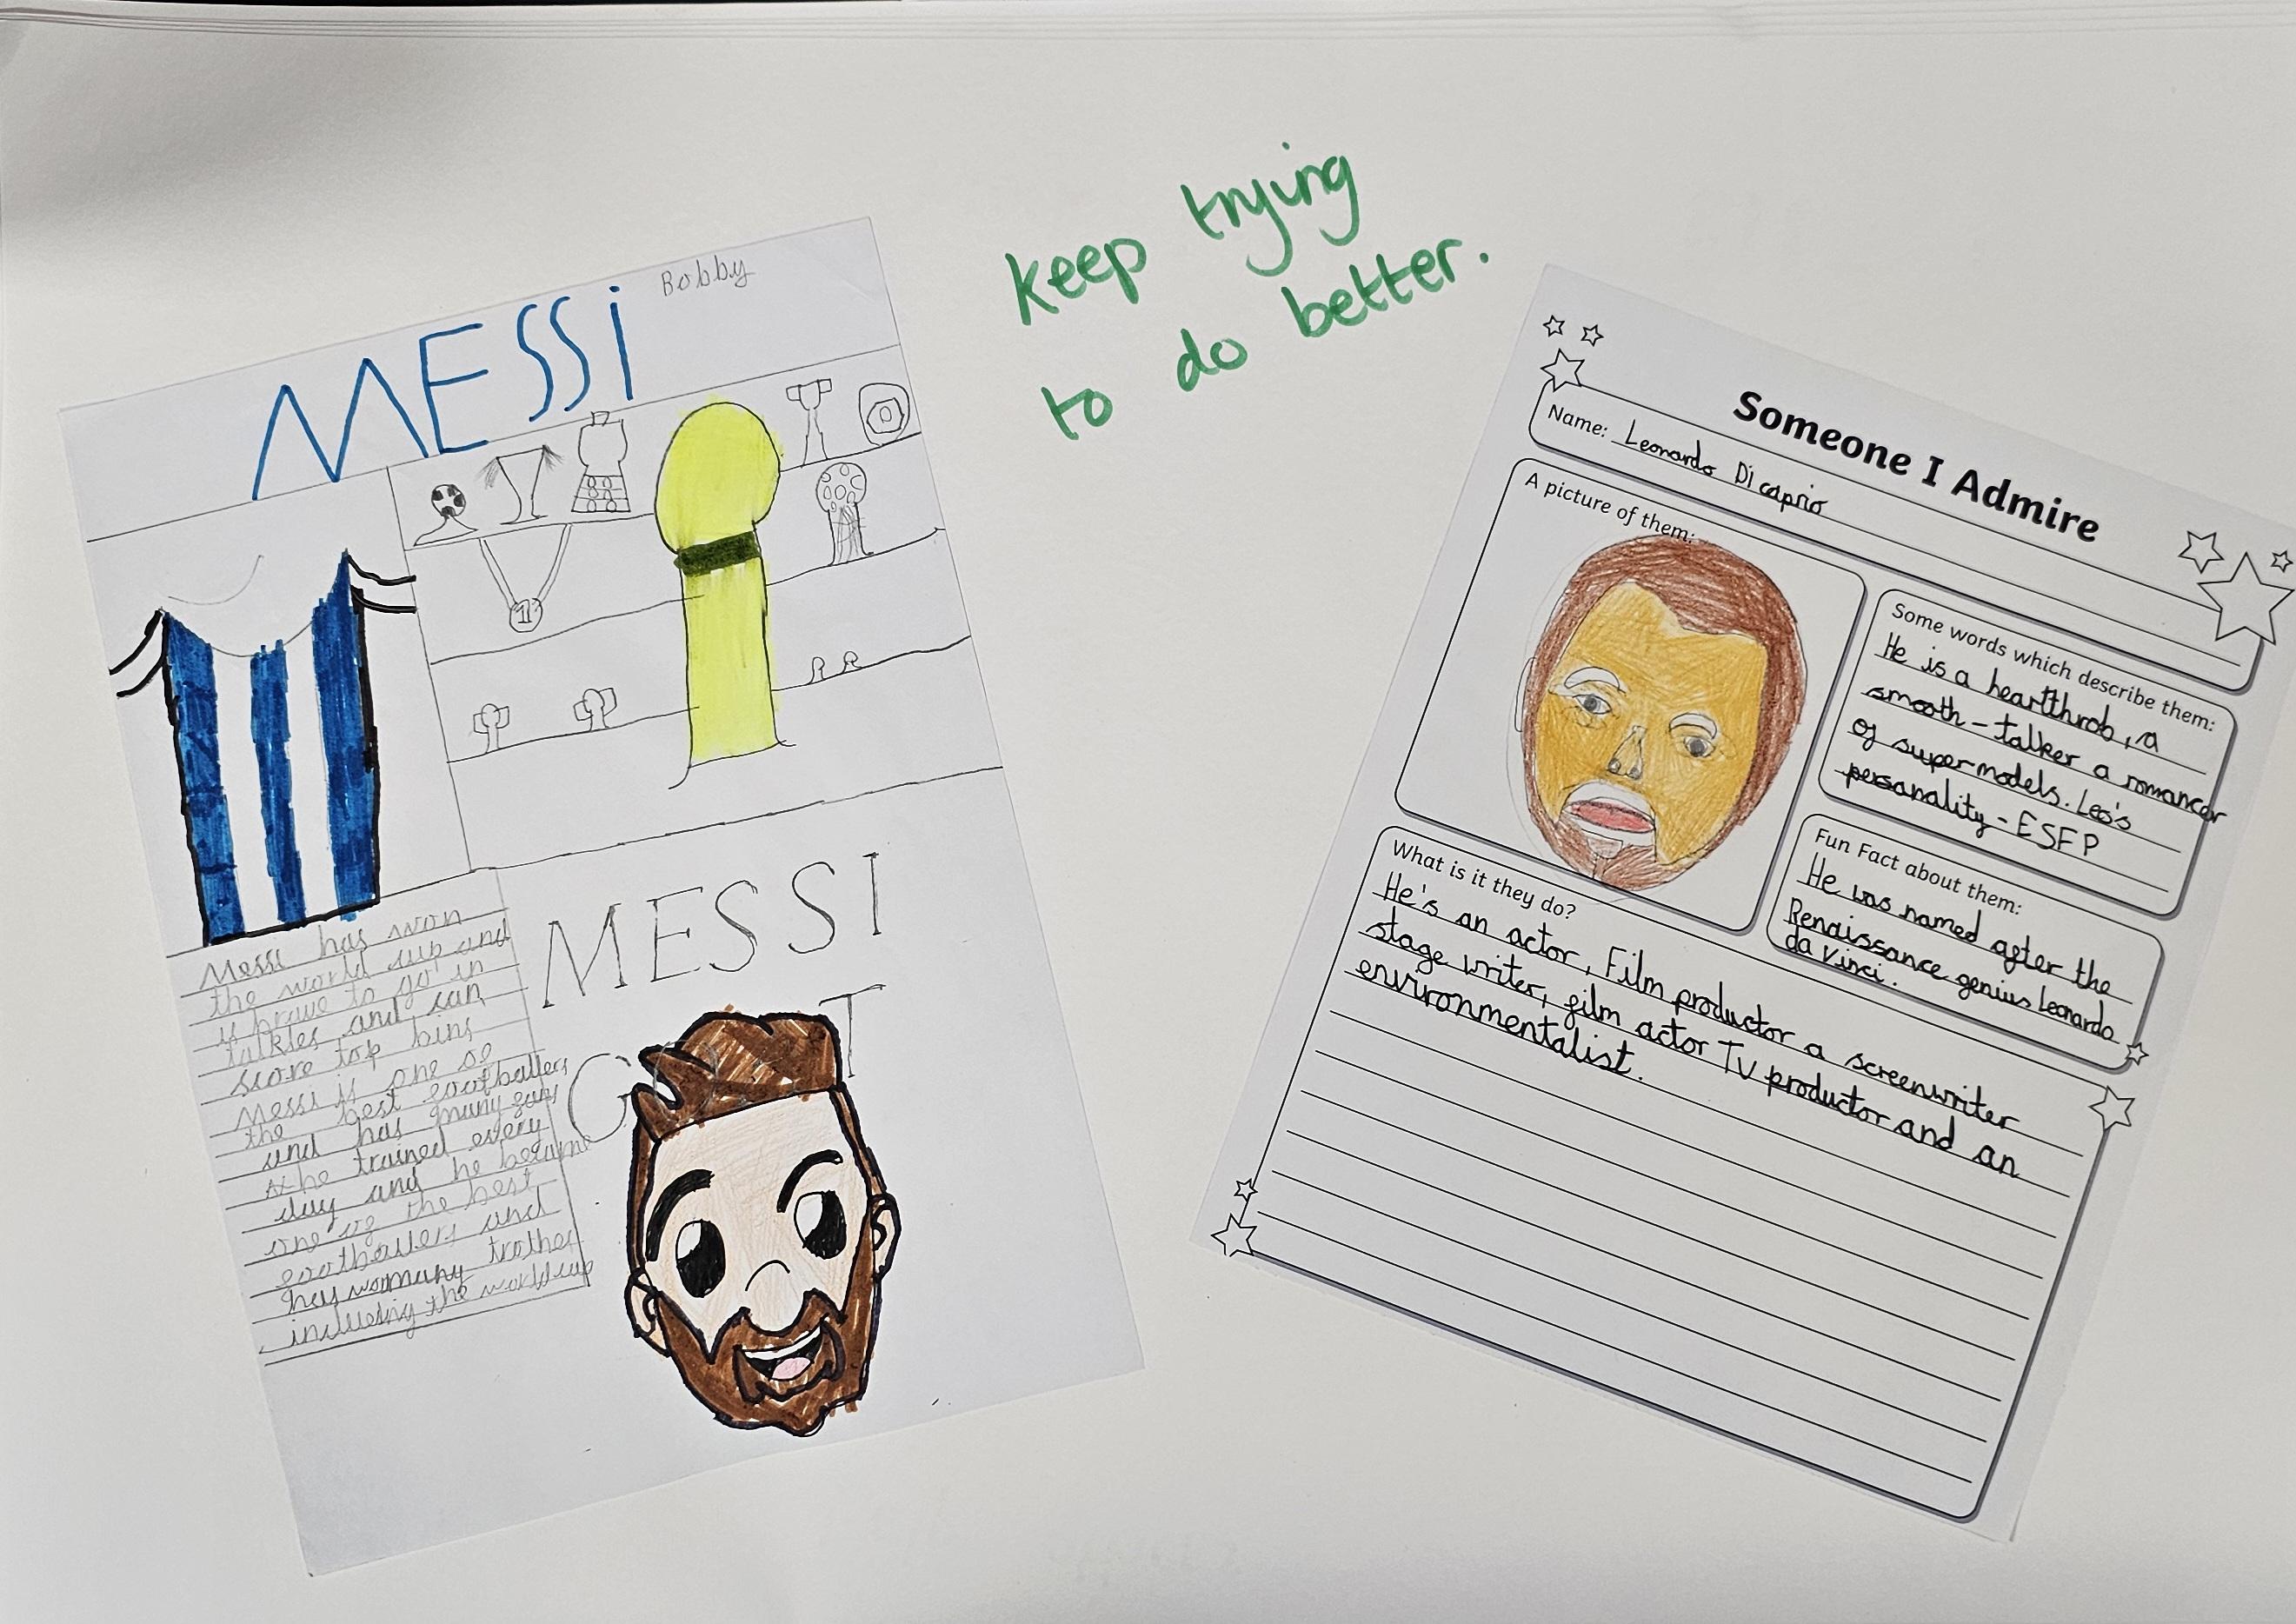 Bobby
MESSI
Messi has won
the world cup and
is brave to go in
talkles and can
score top bins
Messi is one of
the best footballers
and has many fans
he trained every
day and he became
one of the best
footballers and
many
including the world cup
MESSI
G T
1
keep trying
to do better.
Someone I Admire
Name: Leonardo Dicaprio
A picture of them:
Some words which describe them:
He is a heartthrob, a
smooth-talker a romancer
of supermodels. Leo's
personality - ESFP
Fun Fact about them:
He was named after the
Renaissance genius Leonardo
da Vinci.
What is it they do?
He's an actor, Film productor a screenwriter
stage writer, film actor TV productor and an
environmentalist.